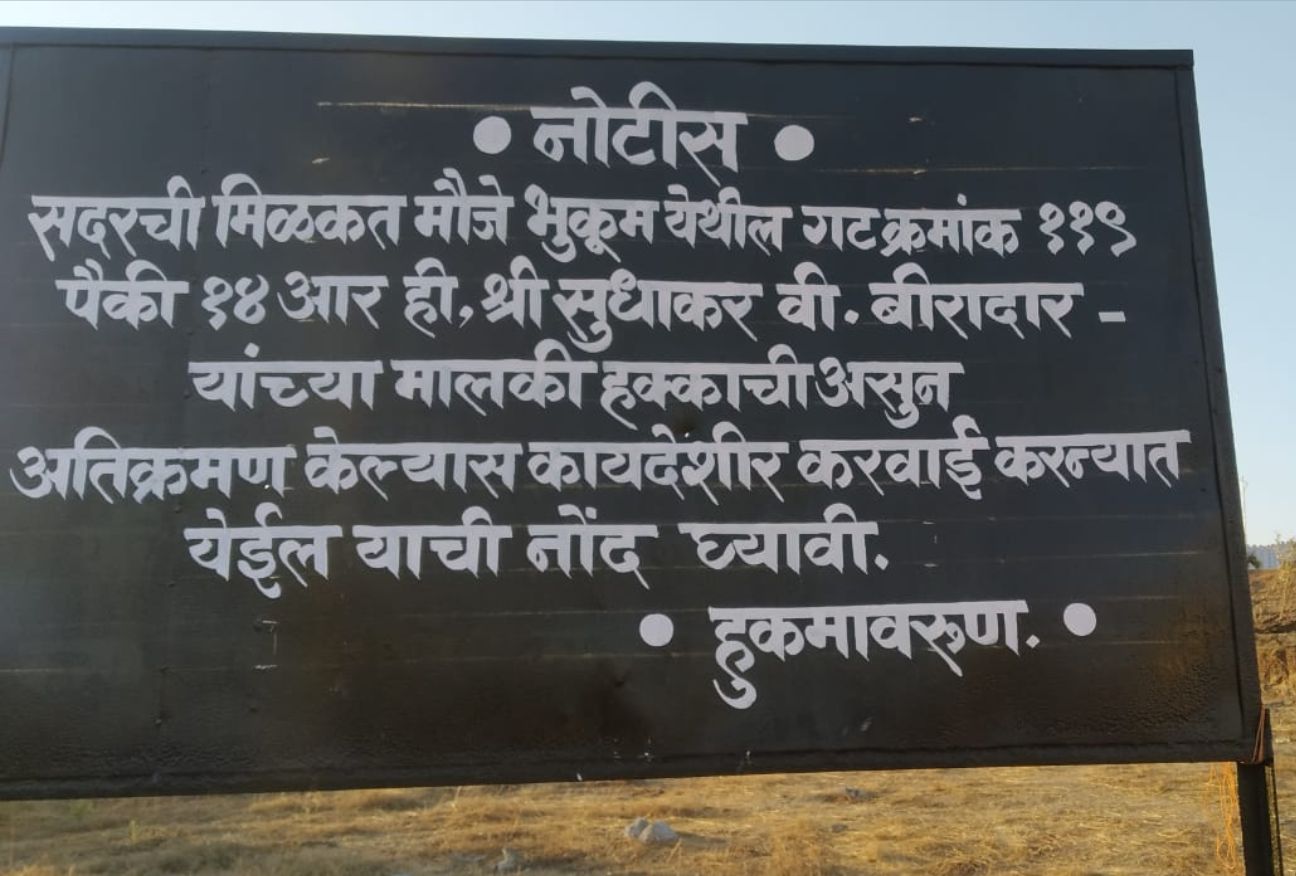 • नोटीस •
सदरची मिळकत मौजे भुकूम येथील गट क्रमांक ११९
पैकी १४ आर ही, श्री सुधाकर वी. बीरादार -
यांच्या मालकी हक्काची असुन
अतिक्रमण केल्यास कायदेंशीर करवाई करन्यात
येईल याची नोंद घ्यावी.
• हुकमावरुण. •